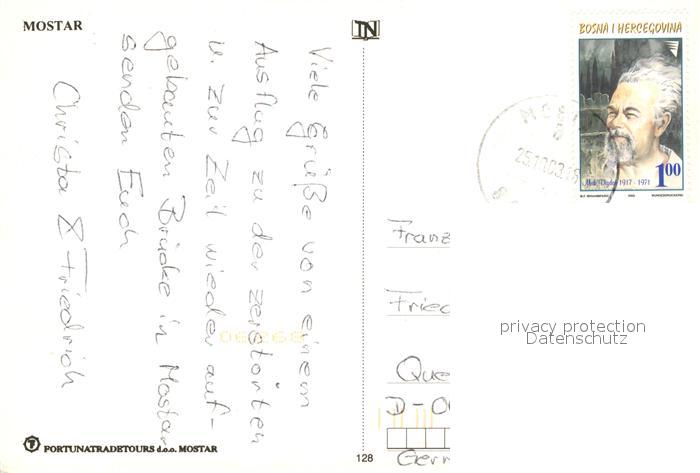 MOSTAR
Viele Grüße von einem
Ausflug zu der zerstörten
u. zur Zeit wieder auf-
gebauten Brücke in Mostar
senden Euch
Christa & Friedrich
BOSNA I HERCEGOVINA
1917 - 1971
1,00
Franz
Fried
Que
D-0
Germ
privacy protection
Datenschutz
FORTUNATRADETOURS d.o.o. MOSTAR
128